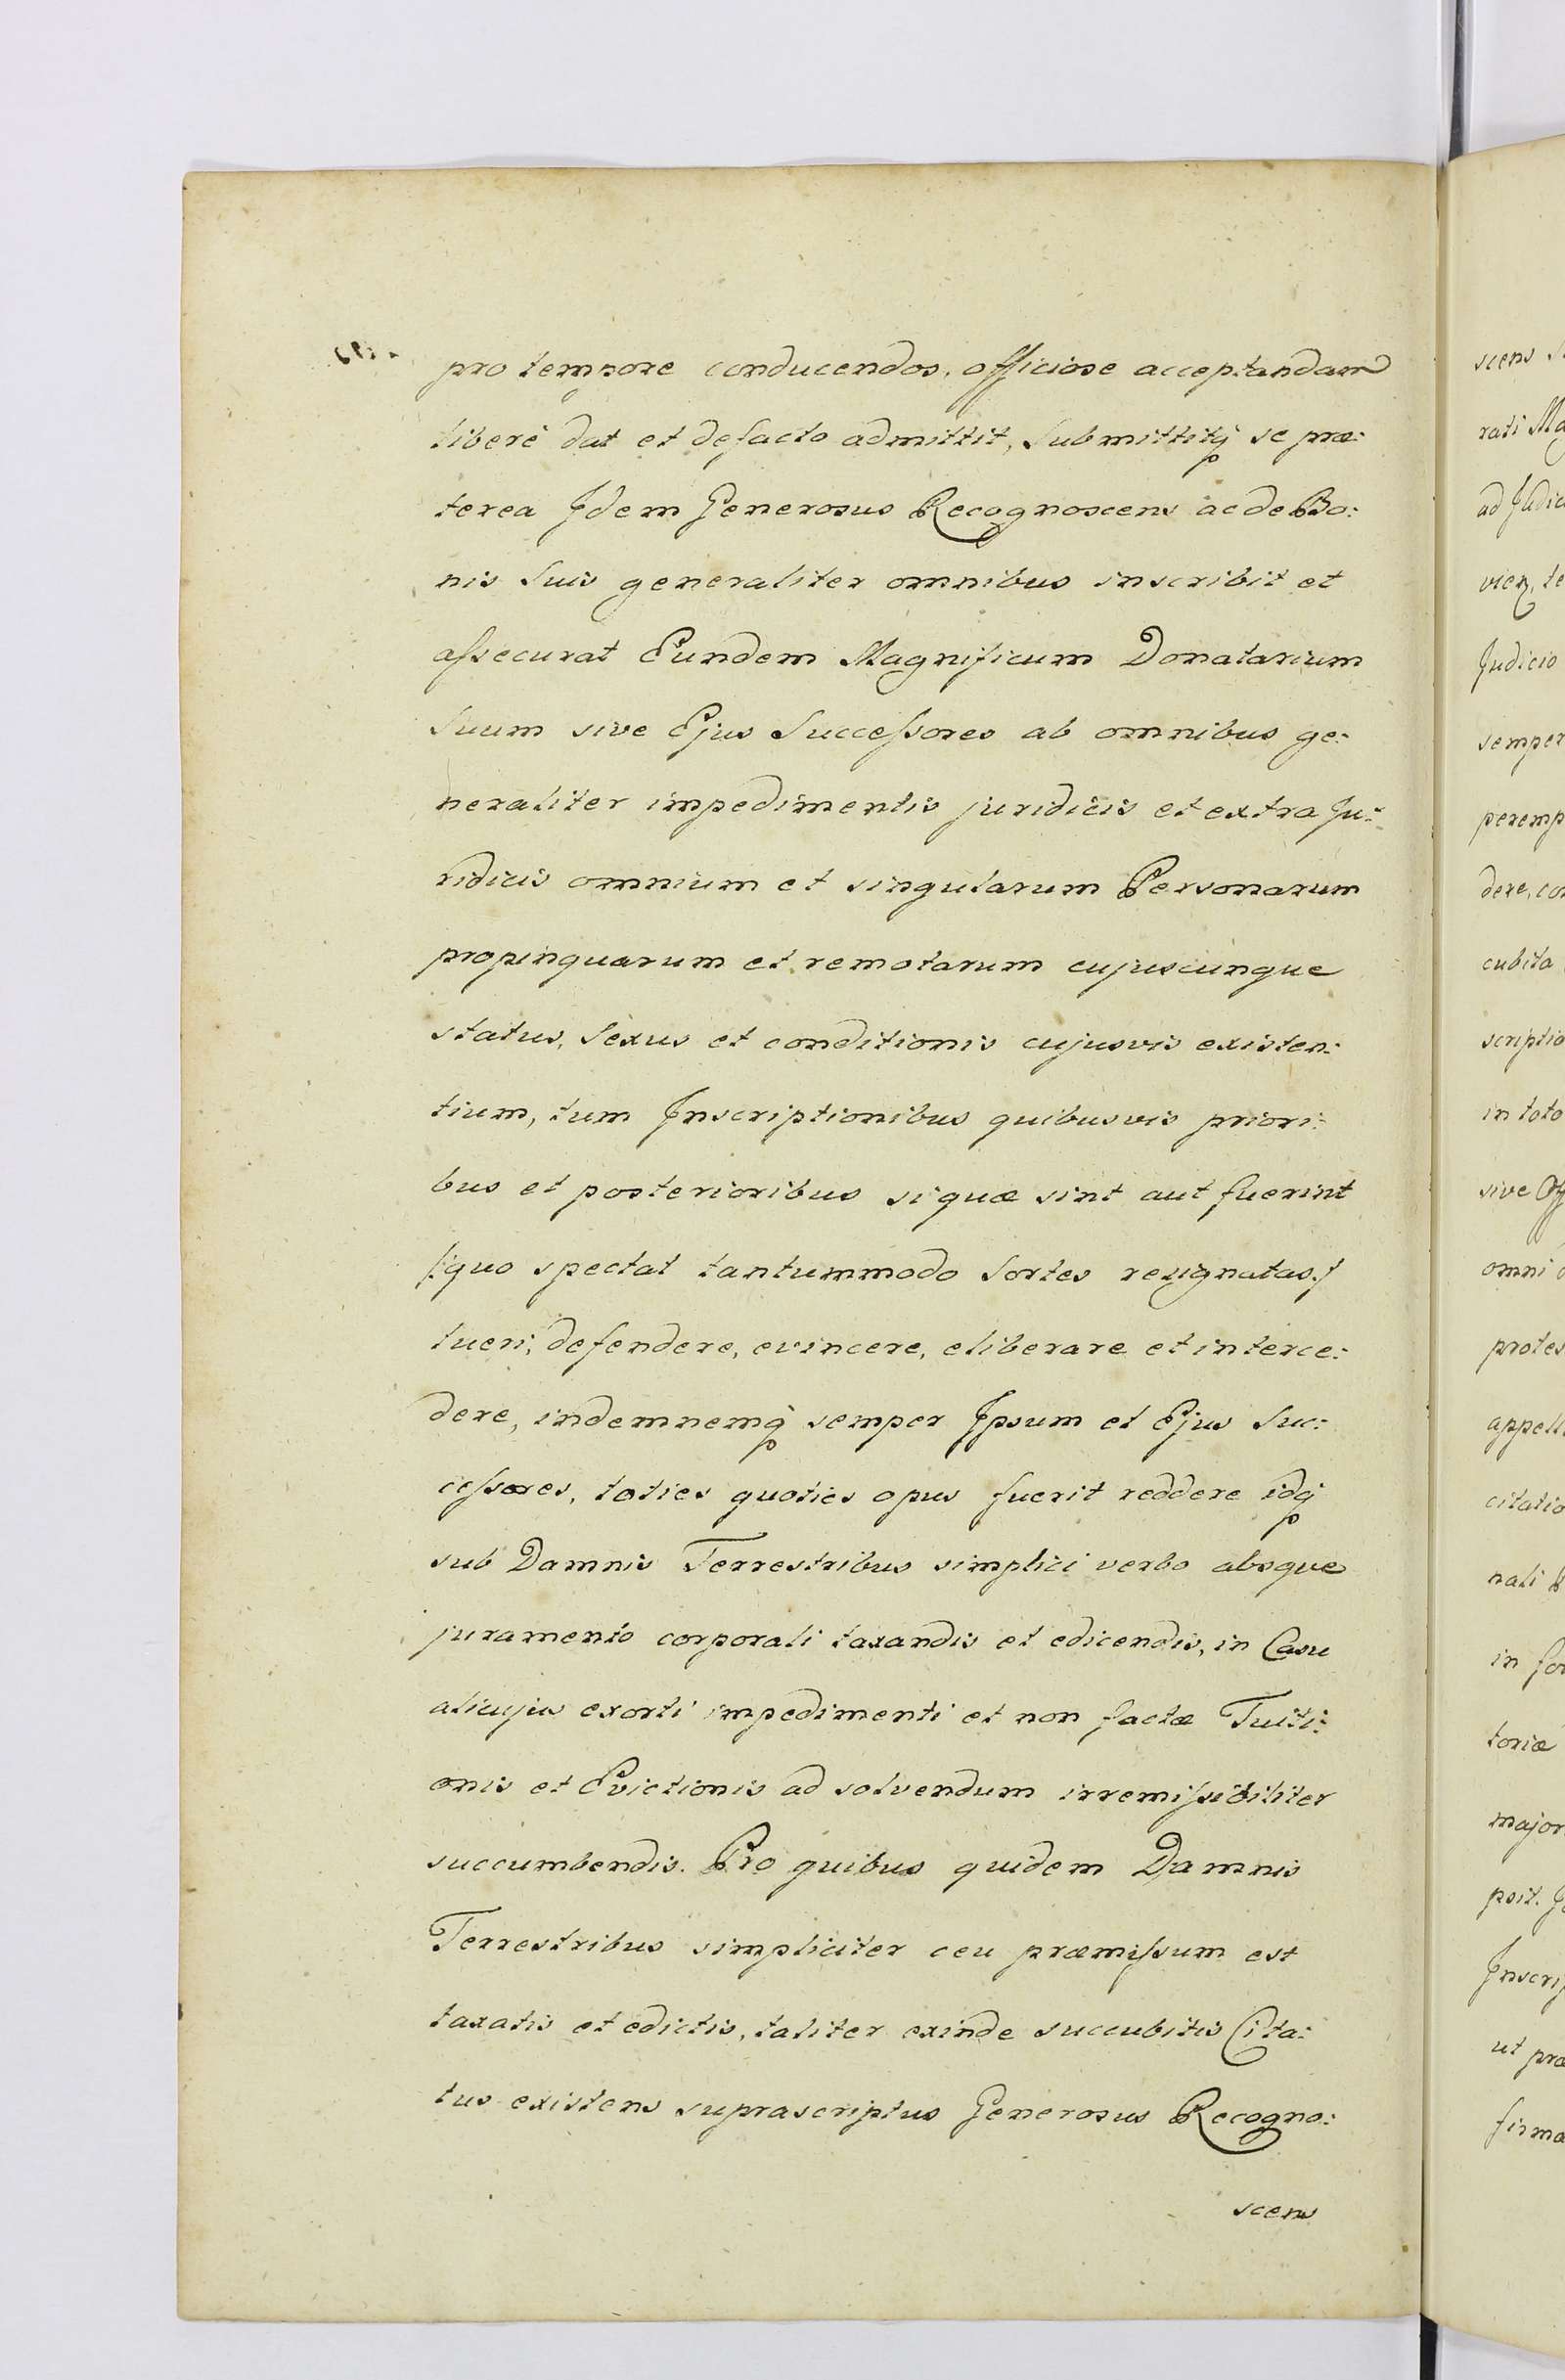 pro tempore conducendos, officiose acceptandam
liberè dat et defacto admittit, Submittitq́ se præ:
terea Idem Generosus Recognoscens ac de Bo:
nis Suis generaliter omnibus inscribit et
aſsecurat Eundem Magnificum Donatarium
Suum sive Ejus Succeſsores ab omnibus ge:
neraliter impedimentis juridicis et extra Ju:
ridicis omnium et singularum Personarum
propinquarum et remotarum cujuscunque
status, Sexus et conditionis cujusvis existen:
tium, tum Inscriptionibus quibusvis priori:
bus et posterioribus siquæ sint aut fuerint
/:quo spectat tantummodo Sortes resignatas:/
tueri, defendere, evincere, eliberare et interce:
dere, indemnemq́ semper Ipsum et Ejus Suc:
ceſsores, toties quoties opus fuerit reddere idq́
sub Damnis Terrestribus simplici verbo absque
juramento corporali taxandis et edicendis, in Casu
alicujus exorti impedimenti et non factæ Tuiti:
onis et Evictionis ad solvendum irremiſsibiliter
succumbendis. Pro quibus quidem Damnis
Terrestribus simpliciter ceu præmiſsum est
taxatis et edictis, taliter exinde succubitis Cita:
tus existens suprascriptus Generosus Recogno:
scens
scens
rati
ad Judic
vicz, te
Judicio
semper
peremp
dere, con
cubita
scriptio
in toto
sive Off
omni
protes
appell
citatio
nali
in for
toriæ
major
psit.
Inscrip
ut præ
firma